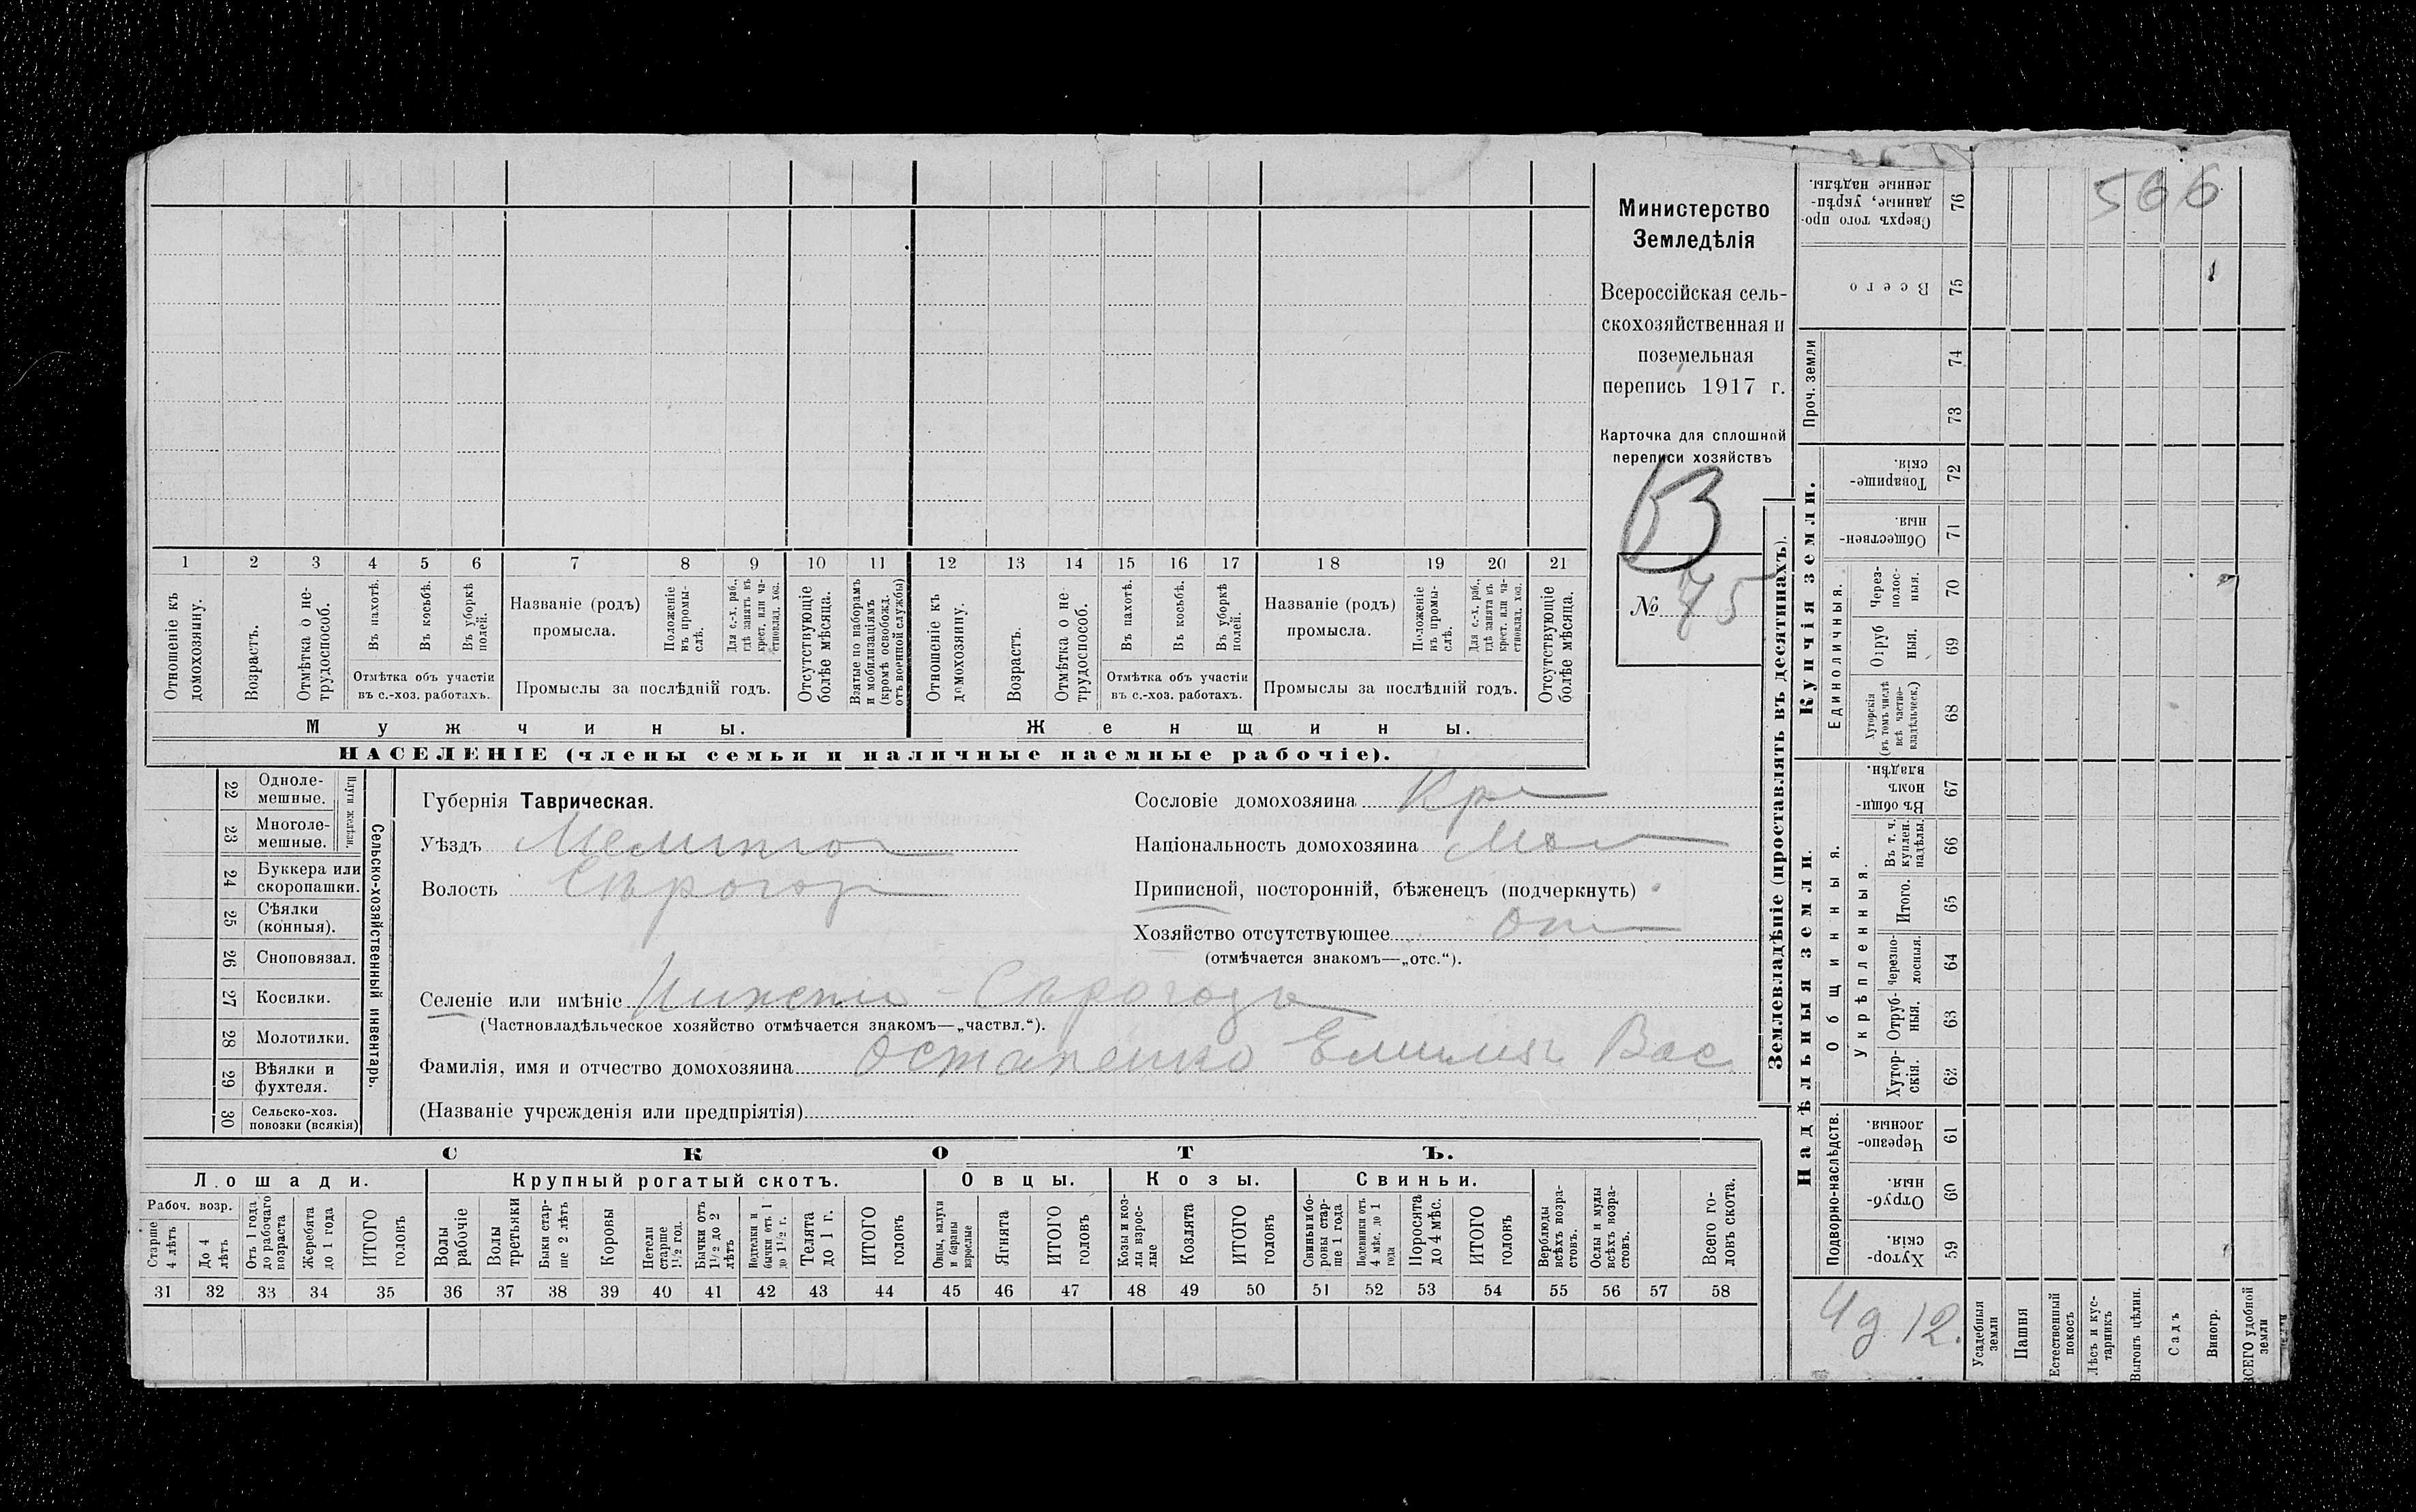 Министерство
Земледѣлія
Всероссійская сель-
скохозяйственная и
поземельная
перепись 1917 г.
Карточка для сплошной
переписи хозяйствъ
В
№ 75
566
1 2 3 4 5 6 7 8 9 10 11 12 13 14 15 16 17 18 19 20 21
Отношеніе къ домохозяину.
Возрастъ.
Отмѣтка о не-трудоспособ.
Въ пахотѣ.
Въ косьбѣ.
Въ уборкѣ полей.
Отмѣтка объ участіи
въ с.-хоз. работахъ.
Названіе (родъ)
промысла.
Положеніе въ промы-слѣ.
Для с.-х. раб., гдѣ занятъ въ крест. или ча-стновлад. хоз.
Промыслы за послѣдній годъ.
Отсутствующіе болѣе мѣсяца.
Взятые по наборамъ и мобилизаціямъ (кромѣ освобожд. отъ военной службы)
Отношеніе къ домохозяину.
Возрастъ.
Отмѣтка о не-трудоспособ.
Въ пахотѣ.
Въ косьбѣ.
Въ уборкѣ полей.
Отмѣтка объ участіи
въ с.-хоз. работахъ.
Названіе (родъ)
промысла.
Положеніе въ промы-слѣ.
Для с.-х. раб., гдѣ занята въ крест. или ча-стновлад. хоз.
Промыслы за послѣдній годъ.
Отсутствующіе болѣе мѣсяца.
Мужчины.
Женщины.
НАСЕЛЕНІЕ (члены семьи и наличные наемные рабочіе).
22 Одноле-мешные.
23 Многоле-мешные.
Плуги желѣзн.
24 Буккера или скоропашки.
25 Сѣялки (конныя).
26 Сноповязал.
27 Косилки.
28 Молотилки.
29 Вѣялки и фухтеля.
30 Сельско-хоз. повозки (всякія)
Сельско-хозяйственный инвентарь.
Губернія Таврическая.
Уѣздъ Мелитоп
Волость Сѣрогоз
Сословіе домохозяина Кр
Національность домохозяина Мал
Приписной, посторонній, бѣженецъ (подчеркнуть)
Хозяйство отсутствующее От
(отмѣчается знакомъ—„отс.“).
Селеніе или имѣніе Нижнія-Сѣрогозы
(Частновладѣльческое хозяйство отмѣчается знакомъ—„частвл.“).
Фамилія, имя и отчество домохозяина Остапенко Емилия Вас
(Названіе учрежденія или предпріятія)
СКОТЪ.
Лошади.
Крупный рогатый скотъ.
Овцы.
Козы.
Свиньи.
Рабоч. возр.
Старше 4 лѣтъ
До 4 лѣтъ
Отъ 1 года до рабочаго возраста
Жеребята до 1 года
ИТОГО головъ
Волы рабочіе
Волы третьяки
Быки стар-ше 2 лѣтъ
Коровы
Нетели старше 1½ год.
Бычки отъ 1½ до 2 лѣтъ
Подтелки и бычки отъ 1 до 1½ г.
Телята до 1 г.
ИТОГО головъ
Овцы, валухи и бараны взрослые
Ягнята
ИТОГО головъ
Козы и коз-лы взрос-лые
Козлята
ИТОГО головъ
Свиньи и бо-ровы стар-ше 1 года
Подсвинки отъ 4 мѣс. до 1 года
Поросята до 4 мѣс.
ИТОГО головъ
Верблюды всѣхъ возра-стовъ.
Ослы и мулы всѣхъ возра-стовъ.
Всего го-ловъ скота.
31 32 33 34 35 36 37 38 39 40 41 42 43 44 45 46 47 48 49 50 51 52 53 54 55 56 57 58
Землевладѣніе (проставлять въ десятинахъ).
Купчія земли.
Надѣльныя земли.
Сверхъ того про-данные, укрѣп-ленные надѣлы. 76
Всего 75
Проч. земли 74 73
Товарище-скія. 72
Обществен-ныя. 71
Единоличныя.
Через-полос-ныя. 70
Отруб ныя. 69
Хуторскія (въ томъ числѣ всѣ частно-владѣльческ.) 68
Общинныя.
Въ общи-номъ владѣн. 67
Укрѣпленныя.
Въ т. ч. куплен. надѣлы. 66
Итого. 65
Черезпо-лосныя. 64
Отруб-ныя. 63
Хутор-скія. 62
Подворно-наслѣдств.
Черезпо-лосныя. 61
Отруб-ныя. 60
Хутор-скія. 59
Усадебныя земли
Пашня
Естественный покосъ
Лѣсъ и кус-тарникъ
Выгонъ цѣлин.
Садъ
Виногр.
ВСЕГО удобной земли